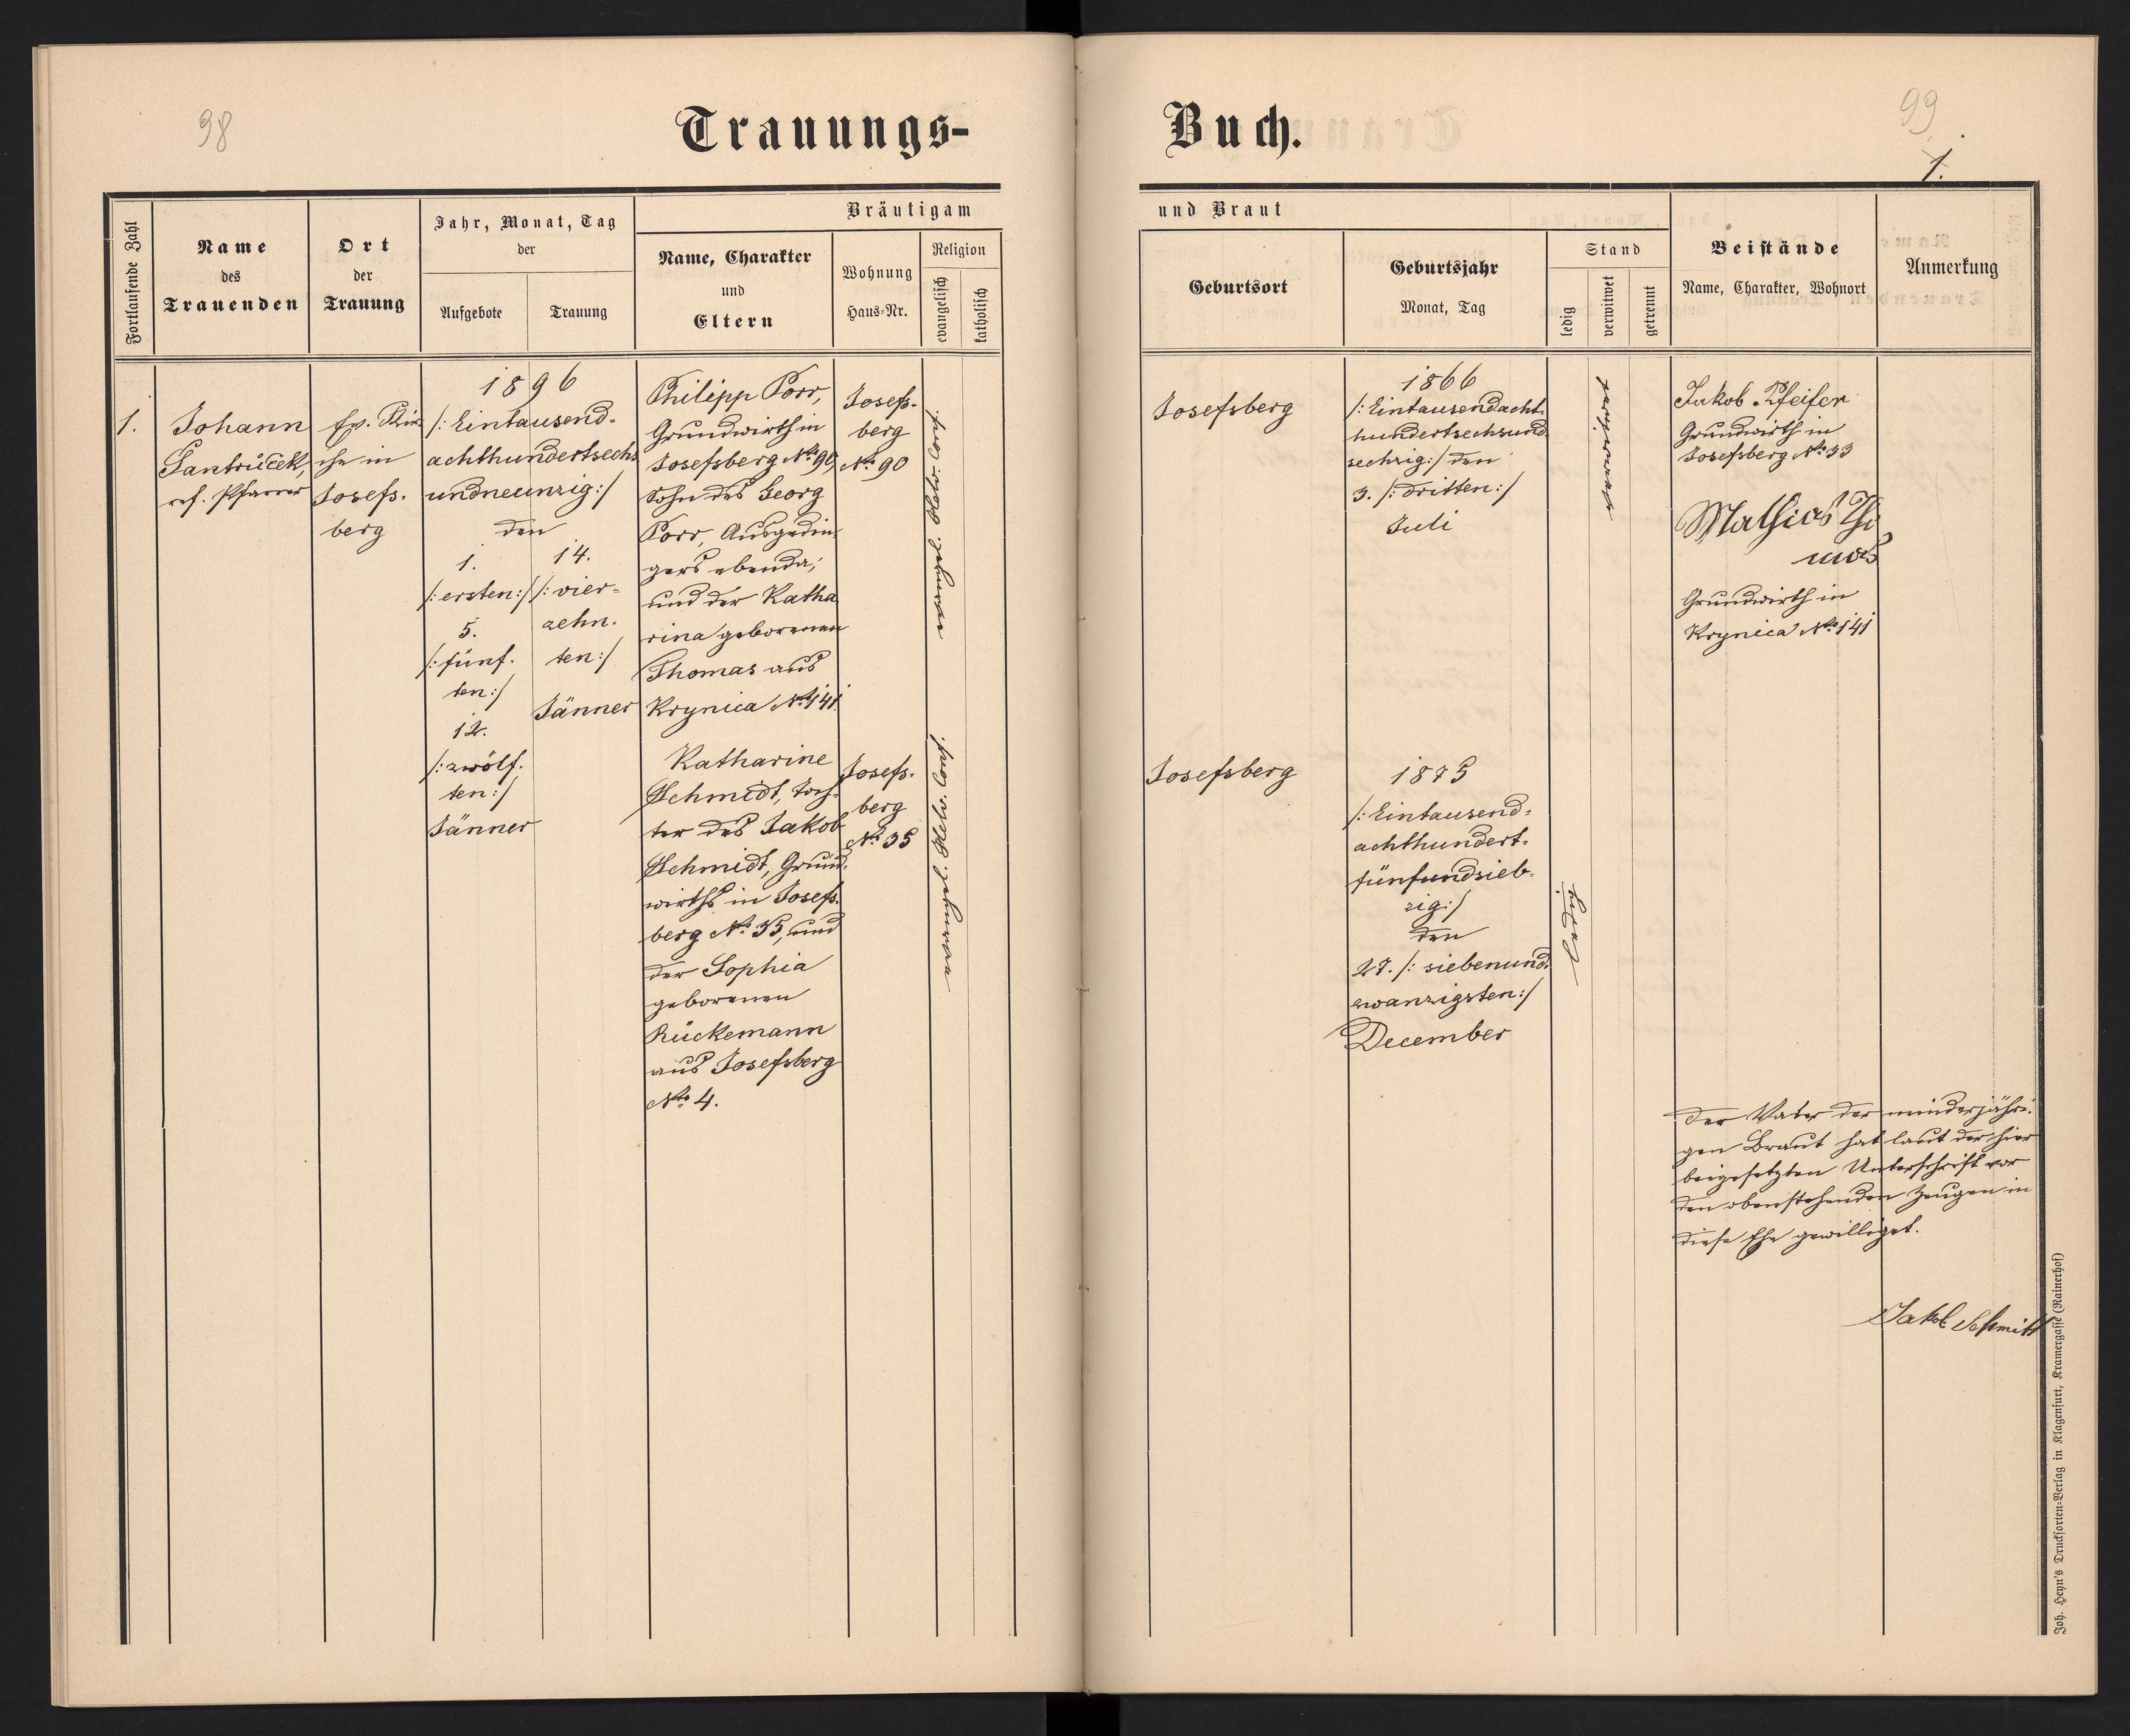 98
Trauungs-
Fortlaufende Zahl
Name
des
Trauenden
Ort
der
Trauung
Jahr, Monat, Tag
der
Aufgebote
Trauung
Bräutigam
Name, Charakter
und
Eltern
Wohnung
Haus-Nr.
Religion
evangelisch
katholisch
1.
Johann
Jantrůček,
ref. Pfarrer
Ev. Kir-
che in
Josefs-
berg
1896
/: Eintausend-
achthundertsechs
undneunzig :/
den
1.
/: ersten :/
5.
/: fünf-
ten :/
12.
/: zwölf-
ten :/
Jänner
14.
/: vier-
zehn-
ten :/
Jänner
Philipp Porr,
Grundwirth in
Josefsberg No 90,
Sohn des Georg
Porr, Ausgedin-
gers ebenda,
und der Katha
rina geborenen
Thomas aus
Krynica No 141.
Josefs-
berg
No 90
evangel. Helv. Conf.
Katharine
Schmidt, Toch-
ter des Jakob
Schmidt, Grund-
wirths in Josefs-
berg No 35, und
der Sophia
geborenen
Rückemann
aus Josefsberg
No 4.
Josefs-
berg
No 35
evangel. Helv. Conf.
99
1.
Buch.
und Braut
Geburtsort
Geburtsjahr
Monat, Tag
Stand
ledig
verwitwet
getrennt
Beistände
Name, Charakter, Wohnort
Anmerkung
Josefsberg
1866
/: Eintausendacht-
hundertsechsund-
sechzig :/ den
3. /: dritten :/
Juli
verwitwet
Jakob Pfeifer
Grundwirth in
Josefsberg No 33
Mathias Tho
mas
Grundwirth in
Krynica No 141
Josefsberg
1875
/: Eintausend-
achthundert-
fünfundsieb-
zig :/
den
27. /: siebenund-
zwanzigsten :/
December
ledig
Der Vater der minderjähri-
gen Braut hat laut der hier
beigesetzten Unterschrift vor
den obenstehenden Zeugen in
diese Ehe gewilliget.
Jakob Schmitt
Joh. Heyn's Drucksorten-Verlag in Klagenfurt, Kramergasse (Rainerhof)